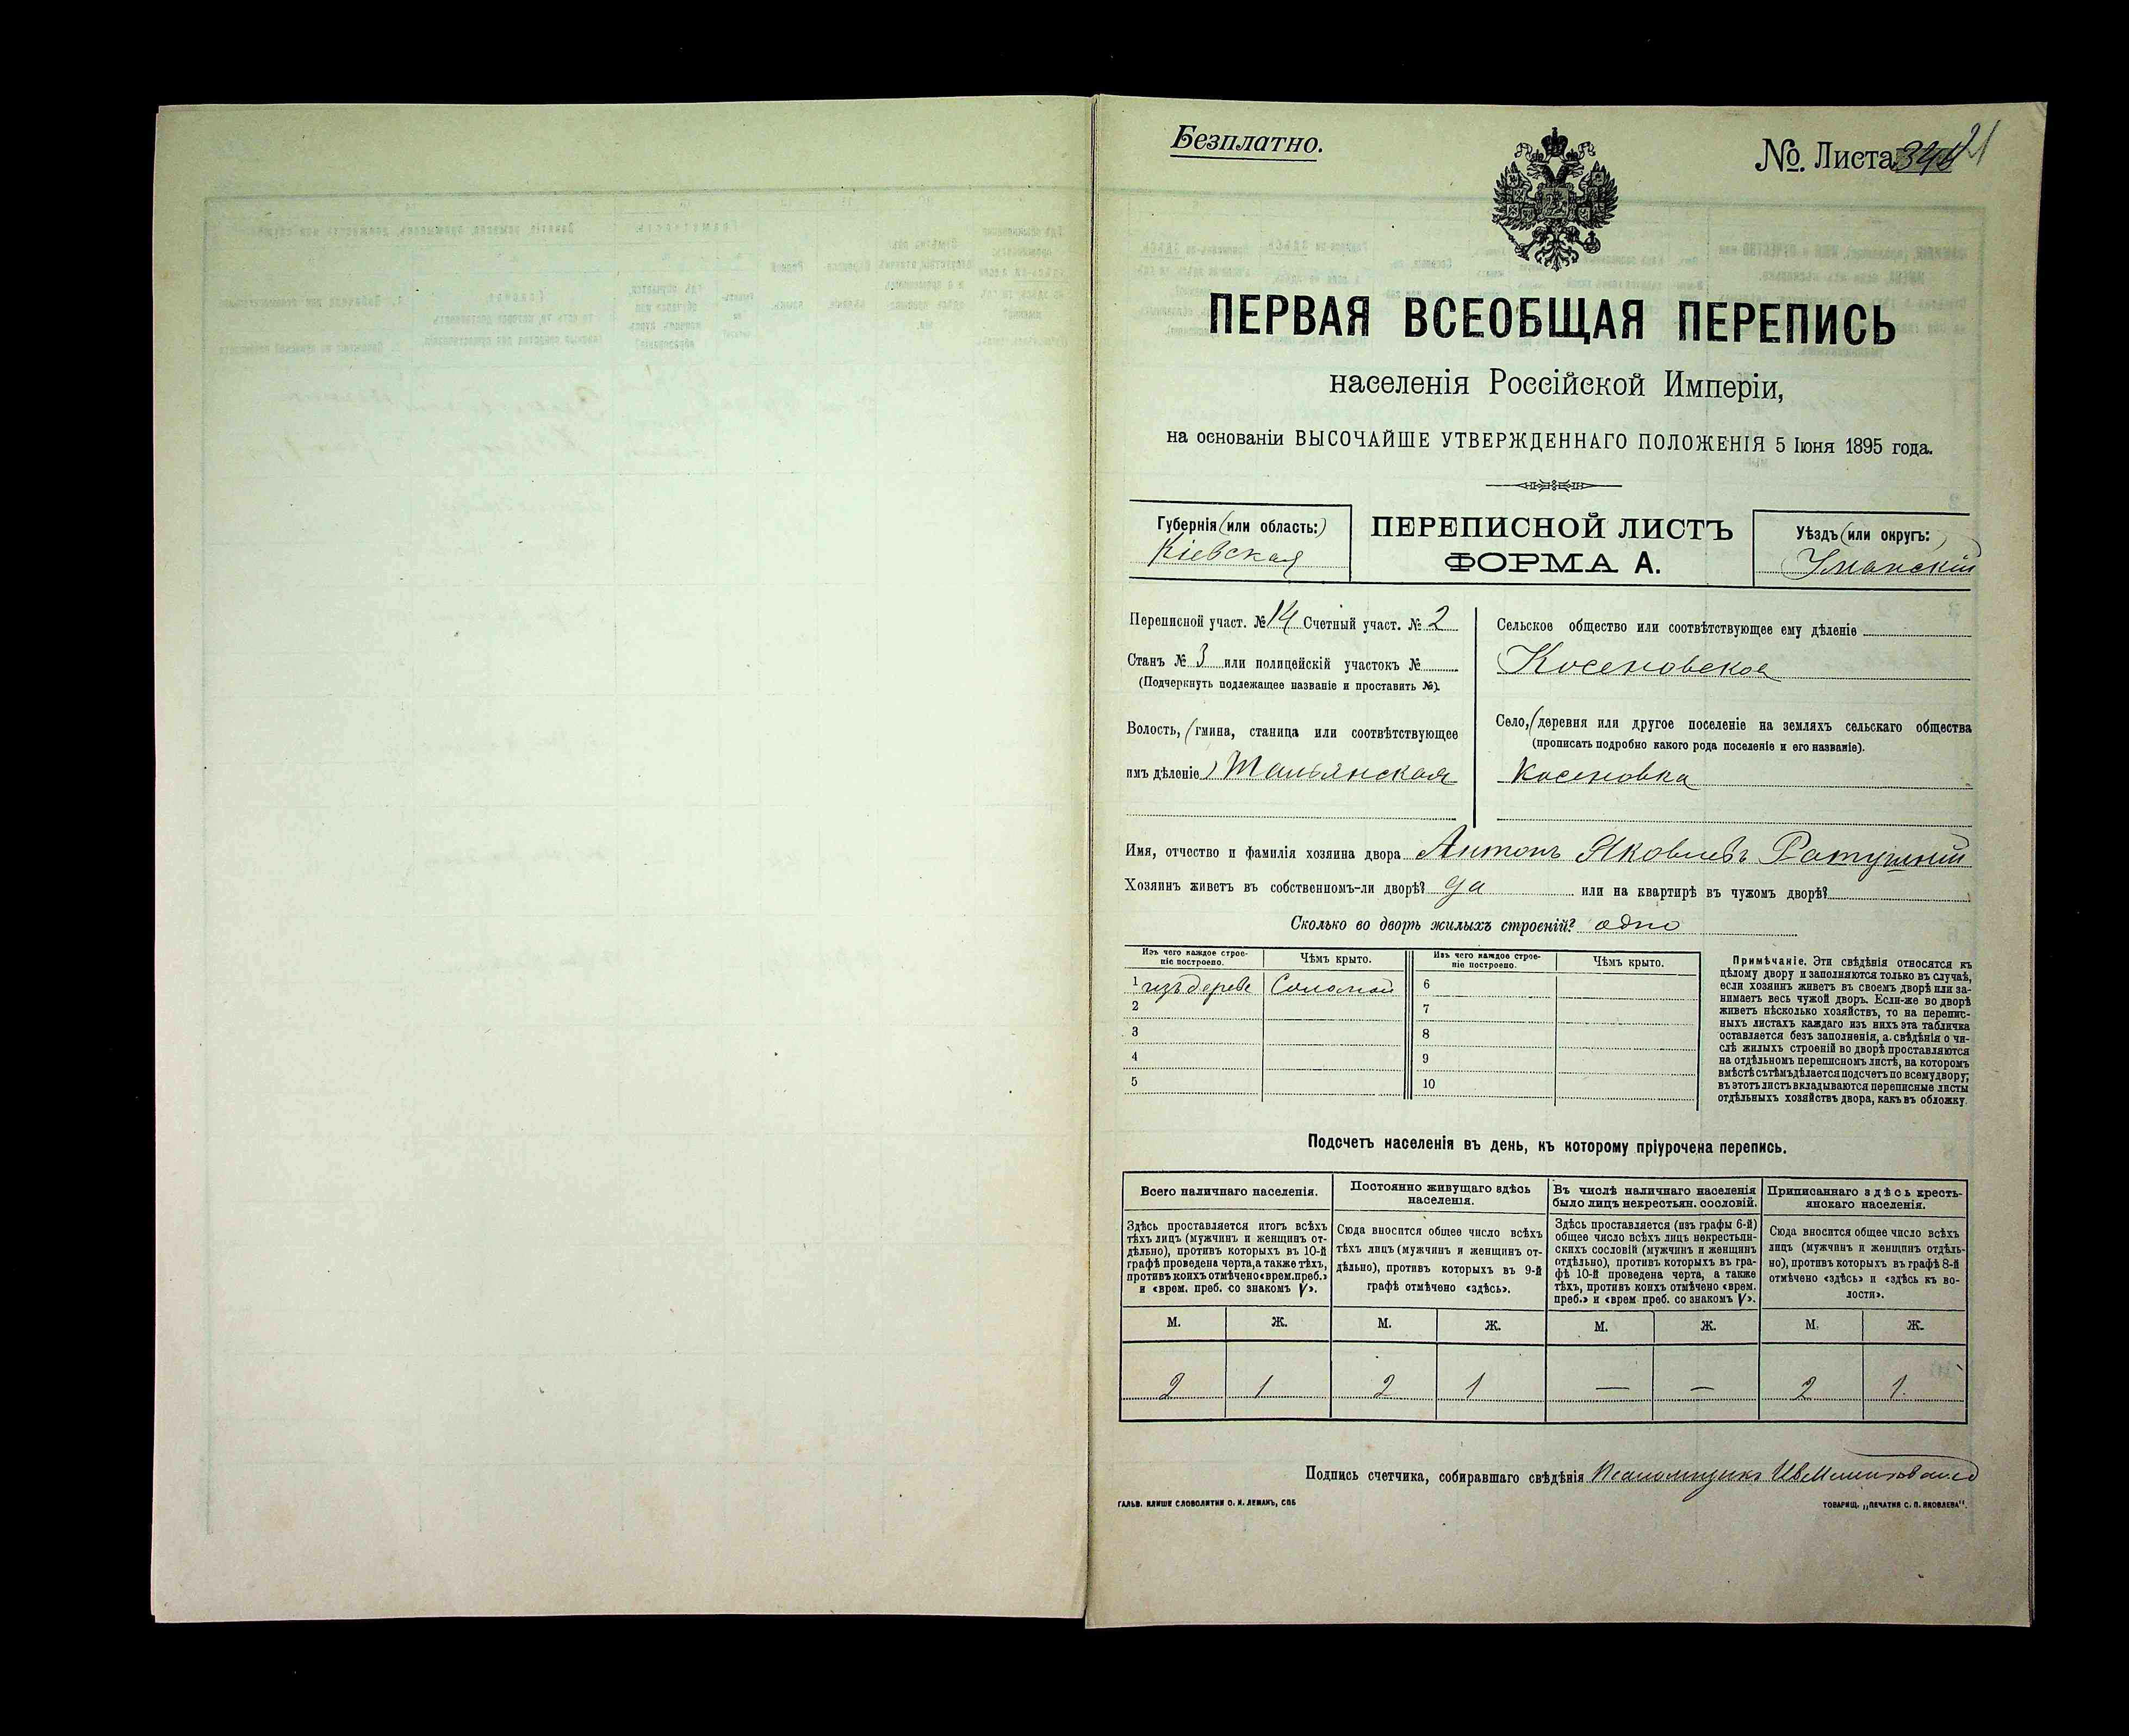 Безплатно.
№ Листа 21
ПЕРВАЯ ВСЕОБЩАЯ ПЕРЕПИСЬ
населенія Россійской Имперіи,
на основаніи ВЫСОЧАЙШЕ УТВЕРЖДЕННАГО ПОЛОЖЕНІЯ 5 Іюня 1895 года.
Губернія (или область:)
Кіевская
ПЕРЕПИСНОЙ ЛИСТЪ
ФОРМА А.
Уѣздъ (или округъ:)
Уманскій
Переписной участ. № 14 Счетный участ. № 2
Станъ № 3 или полицейскій участокъ №
(Подчеркнуть подлежащее названіе и проставить №).
Волость, (гмина, станица или соотвѣтствующее
имъ дѣленіе) Тальянская
Сельское общество или соотвѣтствующее ему дѣленіе
Косеновское
Село, (деревня или другое поселеніе на земляхъ сельскаго общества
(прописать подробно какого рода поселеніе и его названіе).
Косеновка
Имя, отчество и фамилія хозяина двора Антонъ Яковлевъ Ратушній
Хозяинъ живетъ въ собственномъ-ли дворѣ? да или на квартирѣ въ чужомъ дворѣ?
Сколько во дворѣ жилыхъ строеній? одно
Изъ чего каждое строе-
ніе построено.
Чѣмъ крыто.
Изъ чего каждое строе-
ніе построено.
Чѣмъ крыто.
1 изъ дерева Соломой 6
2 7
3 8
4 9
5 10
Примѣчаніе. Эти свѣдѣнія относятся къ
цѣлому двору и заполняются только въ случаѣ,
если хозяинъ живетъ въ своемъ дворѣ или за-
нимаетъ весь чужой дворъ. Если-же во дворѣ
живетъ нѣсколько хозяйствъ, то на перепис-
ныхъ листахъ каждаго изъ нихъ эта табличка
оставляется безъ заполненія, а свѣдѣнія о чи-
слѣ жилыхъ строеній во дворѣ проставляются
на отдѣльномъ переписномъ листѣ, на которомъ
вмѣстѣ съ тѣмъ дѣлается подсчетъ по всему двору;
въ этотъ листъ вкладываются переписные листы
отдѣльныхъ хозяйствъ двора, какъ въ обложку.
Подсчетъ населенія въ день, къ которому пріурочена перепись.
Всего наличнаго населенія.
Здѣсь проставляется итогъ всѣхъ
тѣхъ лицъ (мужчинъ и женщинъ от-
дѣльно), противъ которыхъ въ 10-й
графѣ проведена черта, а также тѣхъ,
противъ коихъ отмѣчено «врем. преб.»
и «врем. преб. со знакомъ V».
Постоянно живущаго здѣсь
населенія.
Сюда вносится общее число всѣхъ
тѣхъ лицъ (мужчинъ и женщинъ от-
дѣльно), противъ которыхъ въ 9-й
графѣ отмѣчено «здѣсь».
Въ числѣ наличнаго населенія
было лицъ некрестьян. сословій.
Здѣсь проставляется (изъ графы 6-й)
общее число всѣхъ лицъ некрестьян-
скихъ сословій (мужчинъ и женщинъ
отдѣльно), противъ которыхъ въ гра-
фѣ 10-й проведена черта, а также
тѣхъ, противъ коихъ отмѣчено «врем.
преб.» и «врем преб. со знакомъ V».
Приписаннаго здѣсь кресть-
янскаго населенія.
Сюда вносится общее число всѣхъ
лицъ (мужчинъ и женщинъ отдѣль-
но), противъ которыхъ въ графѣ 8-й
отмѣчено «здѣсь» и «здѣсь къ во-
лости».
М. Ж. М. Ж. М. Ж. М. Ж.
2 1 2 1 — — 2 1.
Подпись счетчика, собиравшаго свѣдѣнія
ГАЛЬВ. КЛИШЕ СЛОВОЛИТНИ О. И. ЛЕМАНЪ, СПБ
ТОВАРИЩ. „ПЕЧАТНЯ С. П. ЯКОВЛЕВА".